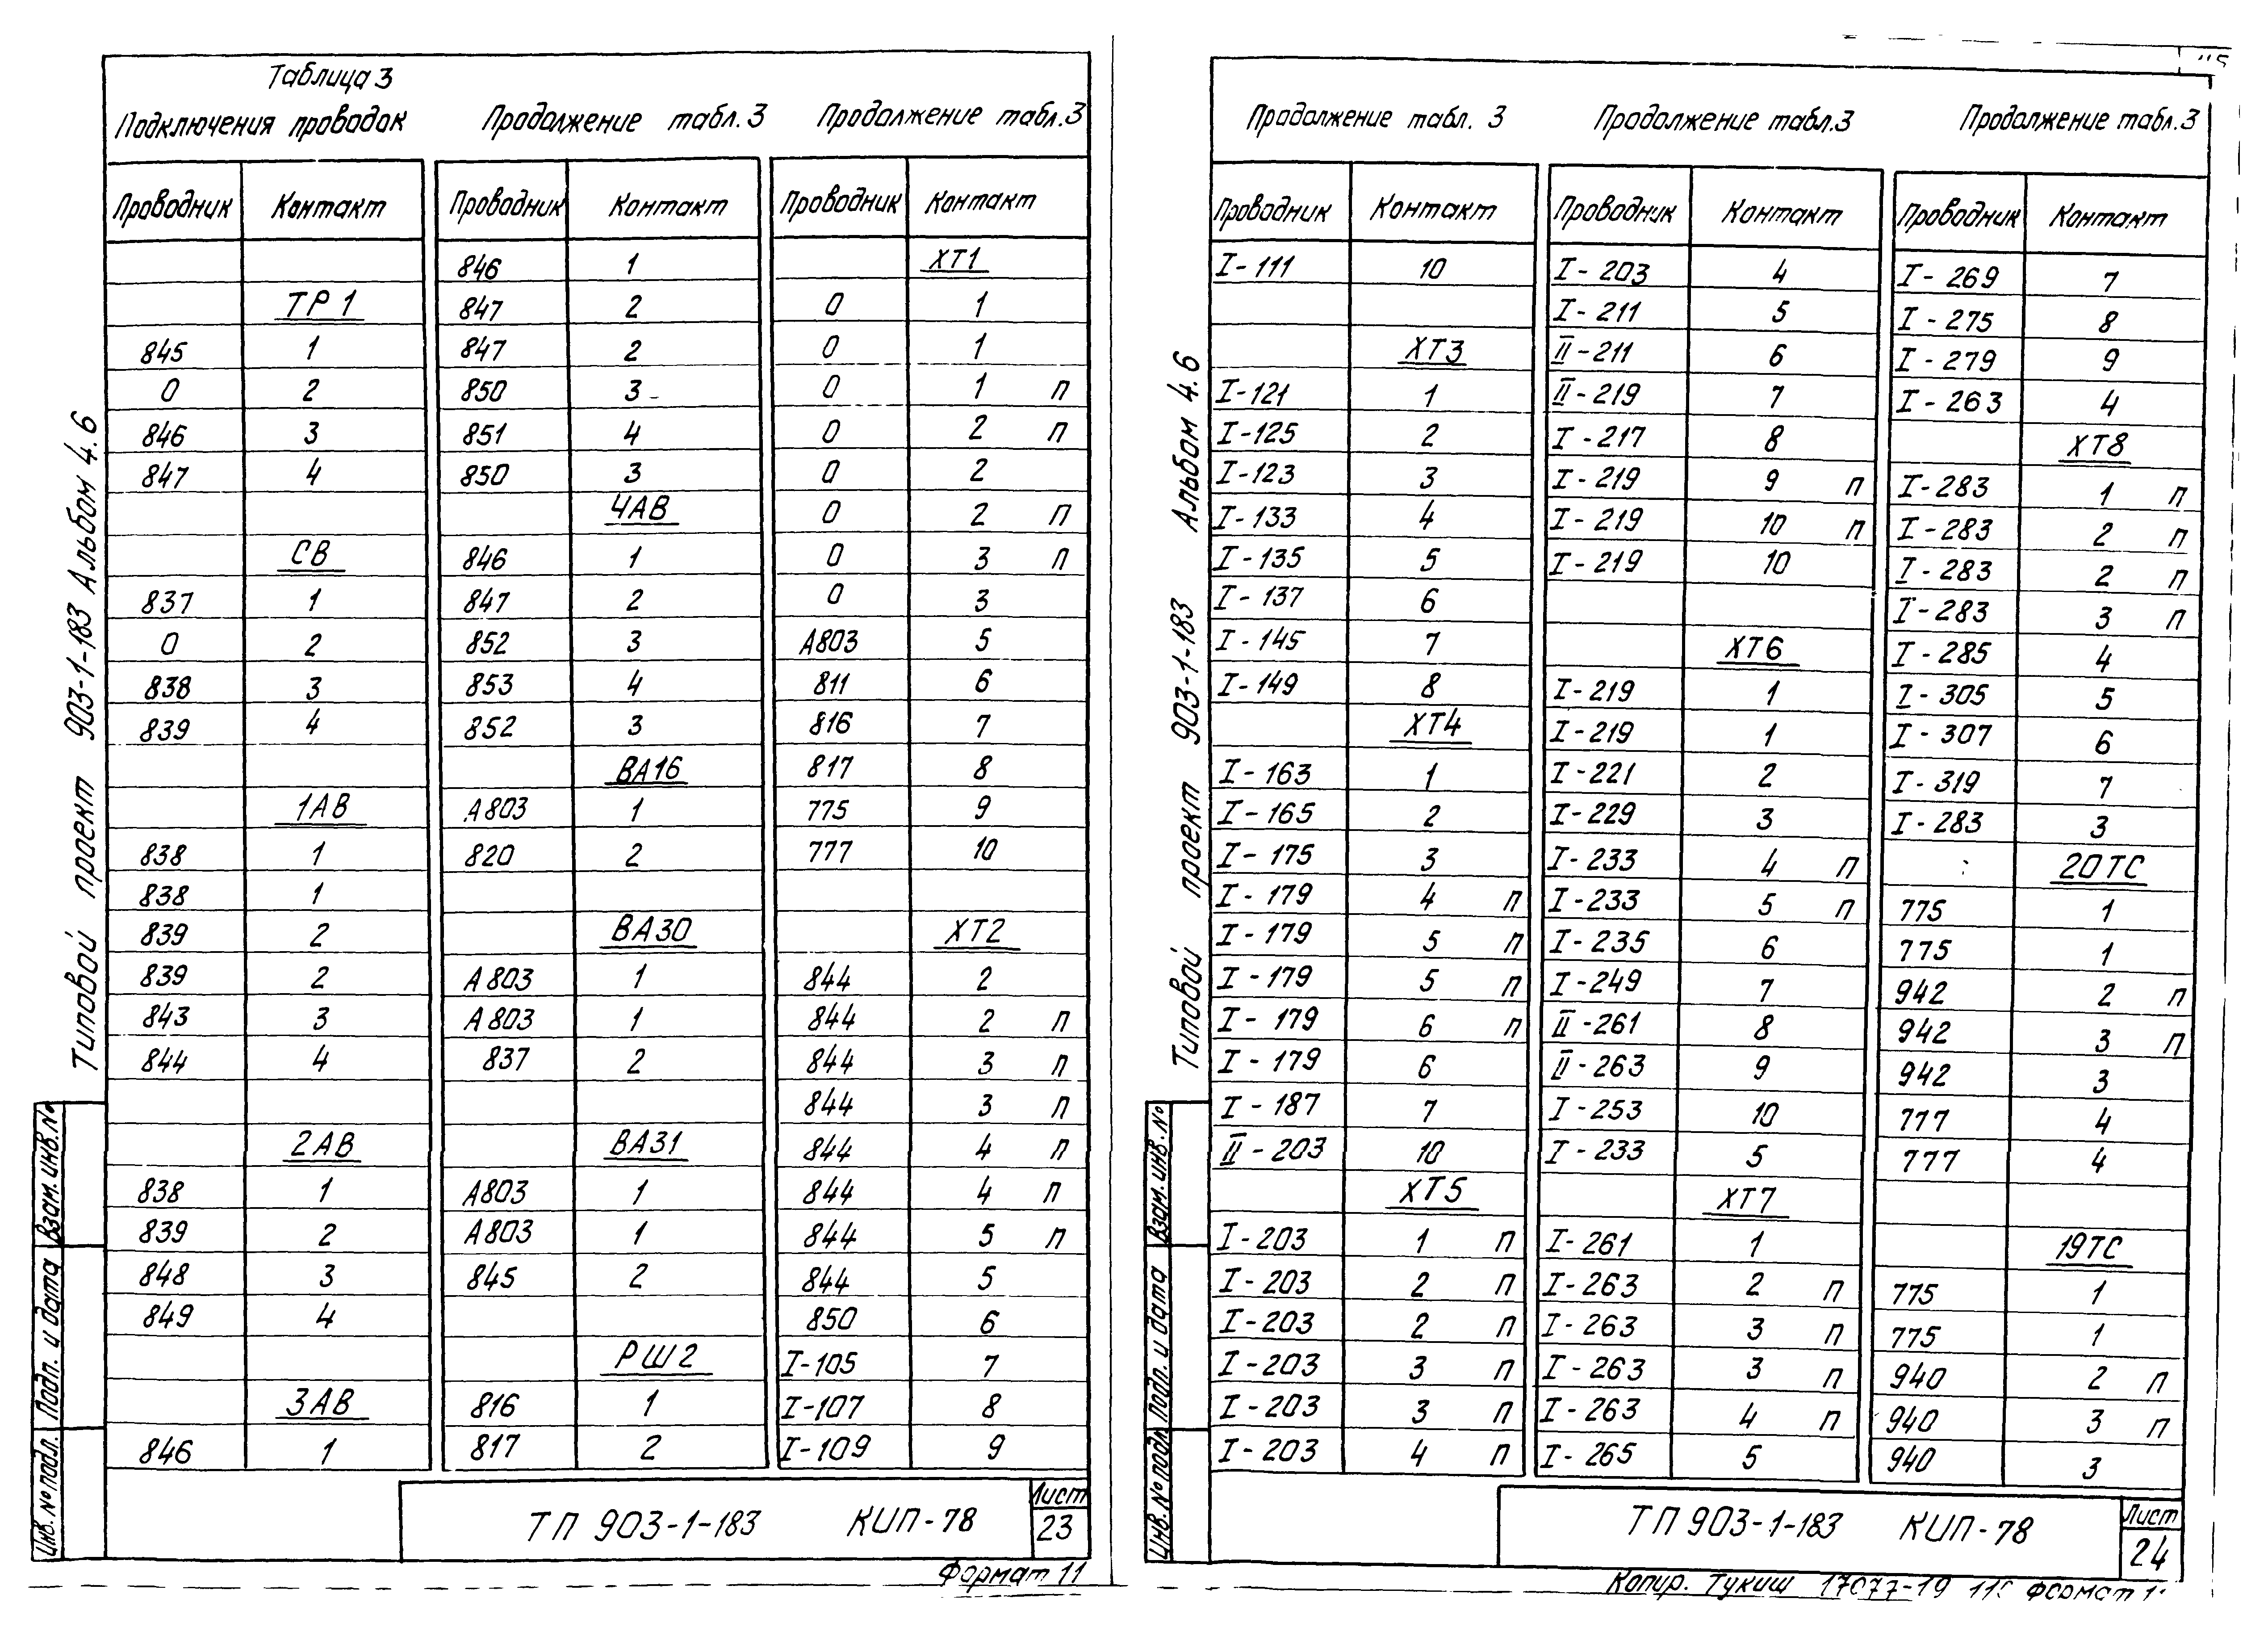 Таблица 3
Подключения проводок
Проводник Контакт
ТР1
845 1
0 2
846 3
847 4
СВ
837 1
0 2
838 3
839 4
1АВ
838 1
838 1
839 2
839 2
843 3
844 4
2АВ
838 1
839 2
848 3
849 4
3АВ
846 1
Продолжение табл. 3
Проводник Контакт
846 1
847 2
847 2
850 3
851 4
850 3
4АВ
846 1
847 2
852 3
853 4
852 3
ВА16
А803 1
820 2
ВА30
А803 1
А803 1
837 2
ВА31
А803 1
А803 1
845 2
РШ2
816 1
817 2
Продолжение табл.3
Проводник Контакт
ХТ1
0 1
0 1
0 1 п
0 2 п
0 2
0 2 п
0 3 п
0 3
А803 5
811 6
816 7
817 8
775 9
777 10
ХТ2
844 2
844 2 п
844 3 п
844 3 п
844 4 п
844 4 п
844 5 п
844 5
850 6
I-105 7
I-107 8
I-109 9
Типовой проект 903-1-183 Альбом 4.6
Инв. № подл. Подп. и дата Взам. инв. №
ТП 903-1-183 КИП-78
Лист
23
Формат 11
Продолжение табл. 3
Проводник Контакт
I-111 10
ХТ3
I-121 1
I-125 2
I-123 3
I-133 4
I-135 5
I-137 6
I-145 7
I-149 8
ХТ4
I-163 1
I-165 2
I-175 3
I-179 4 п
I-179 5 п
I-179 5 п
I-179 6 п
I-179 6
I-187 7
II-203 10
ХТ5
I-203 1 п
I-203 2 п
I-203 2 п
I-203 3 п
I-203 3 п
I-203 4 п
Продолжение табл.3
Проводник Контакт
I-203 4
I-211 5
II-211 6
II-219 7
I-217 8
I-219 9 п
I-219 10 п
I-219 10
ХТ6
I-219 1
I-219 1
I-221 2
I-229 3
I-233 4 п
I-233 5 п
I-235 6
I-249 7
II-261 8
II-263 9
I-253 10
I-233 5
ХТ7
I-261 1
I-263 2 п
I-263 3 п
I-263 3 п
I-263 4 п
I-265 5
Продолжение табл.3
Проводник Контакт
I-269 7
I-275 8
I-279 9
I-263 4
ХТ8
I-283 1 п
I-283 2 п
I-283 2 п
I-283 3 п
I-285 4
I-305 5
I-307 6
I-319 7
I-283 3
20ТС
775 1
775 1
942 2 п
942 3 п
942 3
777 4
777 4
19ТС
775 1
775 1
940 2 п
940 3 п
940 3
Типовой проект 903-1-183 Альбом 4.6
Инв. № подл. Подп. и дата Взам. инв. №
ТП 903-1-183 КИП-78
Лист
24
Копир. Тукиш 17077-19 Формат